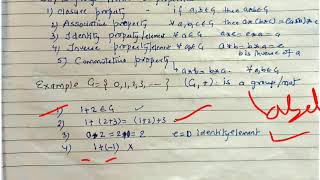 1) closure property - if a,b∈G then a*b∈G
2) Associative property ∀ a,b,c∈G then a*(b*c)=(a*b)*c
3) Identity property/element ∀ a∈G a*e=e*a=a
4) Inverse property ∀ a∈G a*b=b*a=e
b is inverse of a
5) Commutative property
a*b=b*a ∀ a,b∈G
Example G={0,1,2,3, ...} (G,+) is a group/not
1) 1+2∈G
2) 1+(2+3)=(1+2)+3
3) e=0 identity element
4) 1+(-1) X